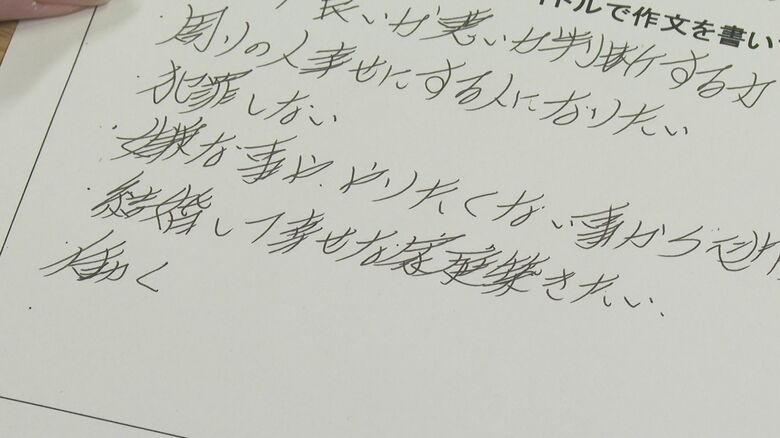 トルで作文を書い
良いか悪いか判断する力
周りの人幸せにする人になりたい
犯罪しない
・嫌な事や、やりたくない事から逃
・結婚して幸せな家庭築きたい.
・働く